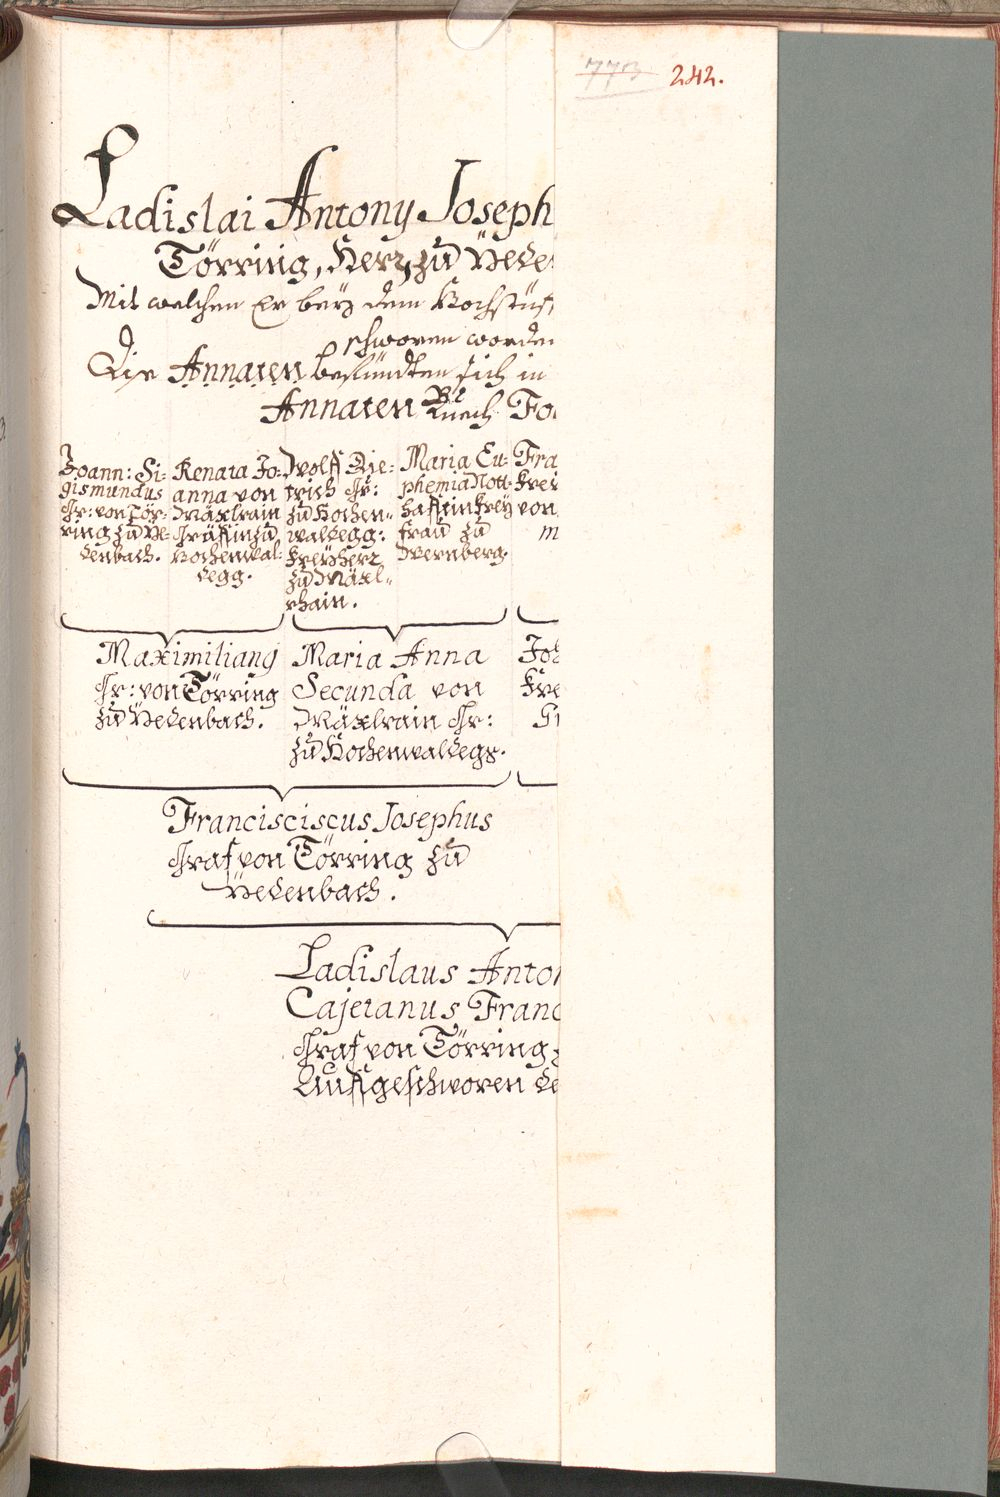 773 242.
Ladislai Antony Joseph
Törring, Herr zu
Mit welchen Er bey dem Hochstüf
schworen worden
Die Annaten befündten sich in
Annaten Buech Fo
Joann: Si=
gismundus
Gr: von Tör=
ring zu Ye=
tenbach.
Renata Jo=
anna von
Mäxlrain
Gräfin zu
Hochenwal=
degg.
Wolff Die=
trich Gr:
zu Hochen=
waldegg:
Freyherr
zu Mäxl=
rhain.
Maria Eu=
phemia Nott=
hafftin Frey
Frau zu
Wernberg.
Fra
Frey
von
m
Maximilianus
Gr: von Törring
zu Yetenbach.
Maria Anna
Secunda von
Mäxlrain Gr:
zu Hochenwaldegg.
Joh
Fre
Francisciscus Josephus
Graf von Törring zu
Yetenbach.
Ladislaus Anton
Cajetanus Franc
Graf von Törring z
Auffgeschworen de